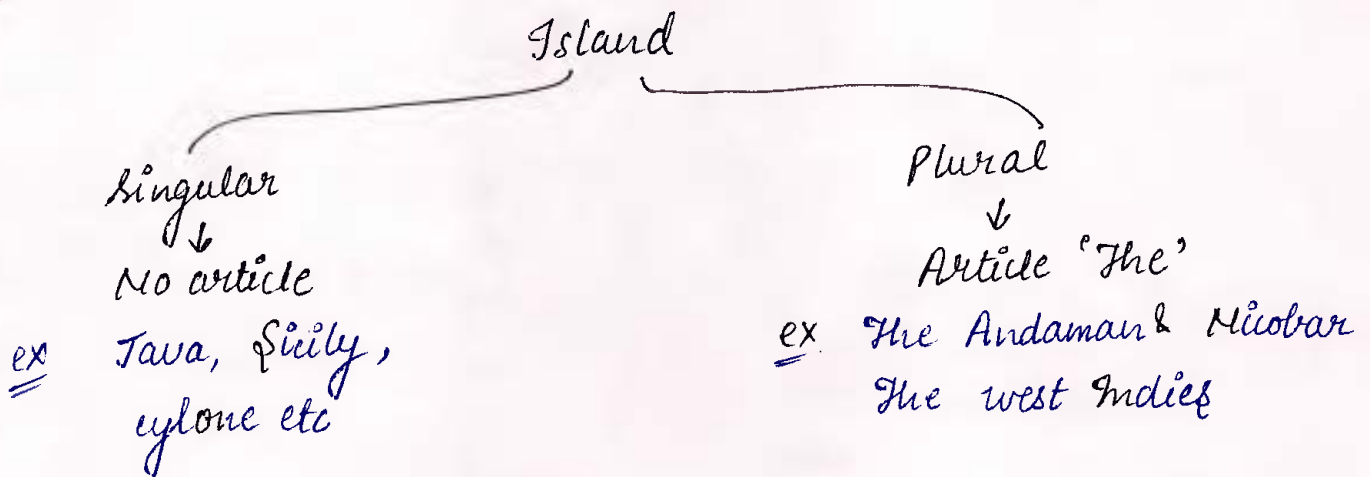 Island
Singular
↓
No article
ex Java, Sicily,
cylone etc
Plural
↓
Article 'The'
ex. The Andaman & Nicobar
The west Indies